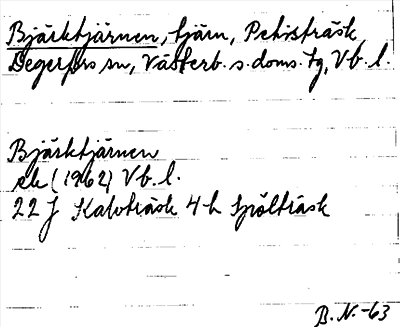 Björktjärnen, tjärn, Petisträsk,
Degerfors sn, Västerb. s. doms. tg, Vb. l.
Björktjärnen
ek (1962) Vb. l.
22 J Kalvträsk 4 h Spölträsk
B. N. -63